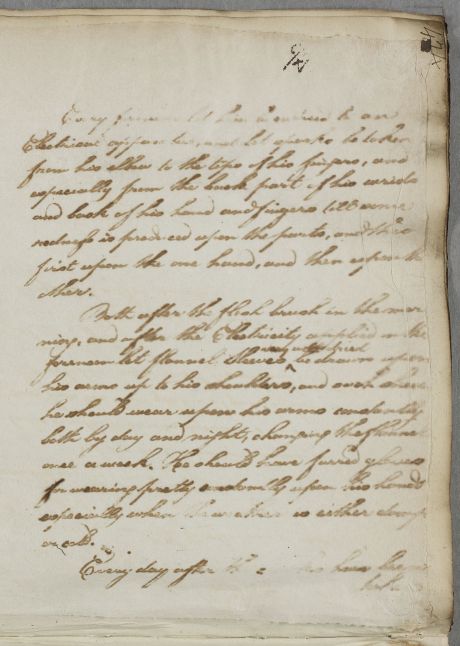 Every forenoon let him be carried to an
Electrical apparatus, and let sparks be taken
from his elbow to the tips of his fingers, and
especially from the back part of his wrists
and back of his hand and fingers till some
redness is produced upon the parts, and this
first upon the one hand, and then upon the
other.
Both after the flesh brush in the mor
ning, and after the Electricity applied in the
forenoon let flannel sleeves be drawn upon
his arms up to his shoulders, and such
he should wear upon his arms constantly
both by day and night, changing the flannel
once a week. He should have furred gloves
for wearing pretty constantly upon his hands
especially when the weather is either damp
or cold.
Every day after